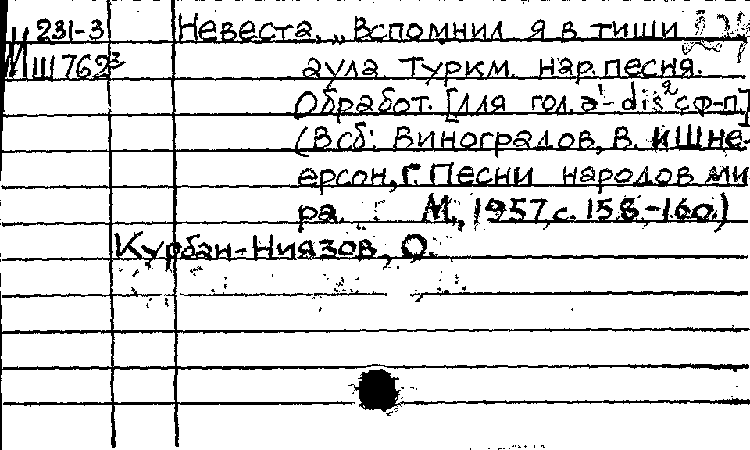 М 231-3 Невеста. „Вспомнил я в тиши
Ш 762³ аула. Туркм. нар. песня.
Обработ. [для гол. а¹-dis² с ф-п.]
(В сб: Виноградов, В. и Шне-
ерсон, Г. Песни народов ми-
ра. М., 1957, с. 158-160.)
Курбан-Ниязов, О.